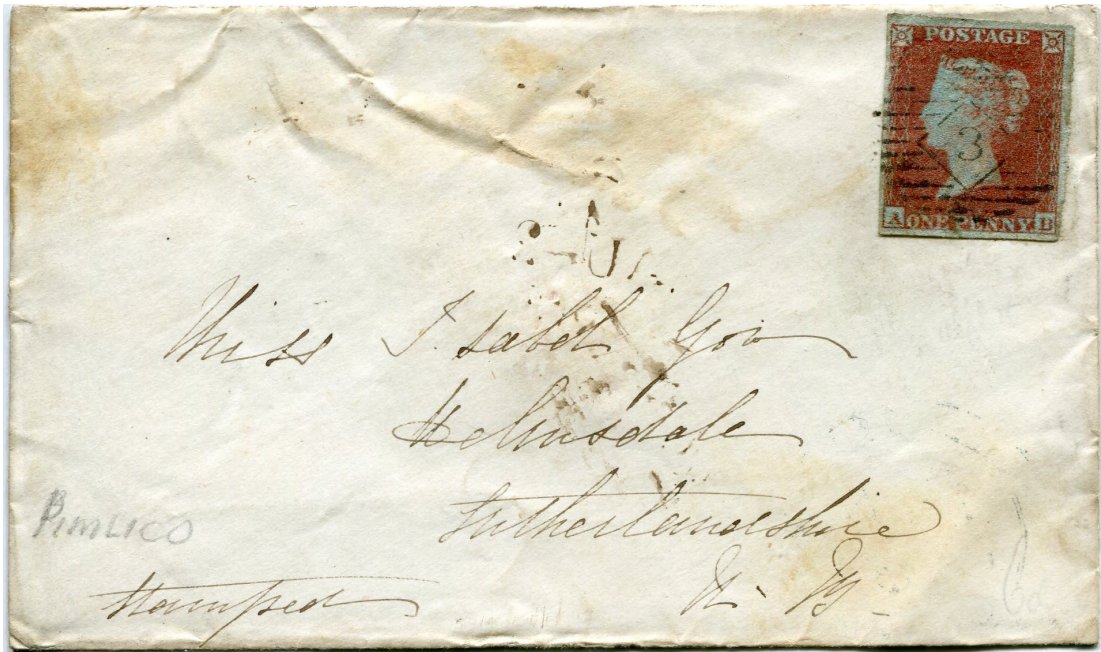 POSTAGE
3
A ONE PENNY B
Miss Isabel Gow
Helmsdale
Sutherlandshire
N. B.
PIMLICO
Stamped